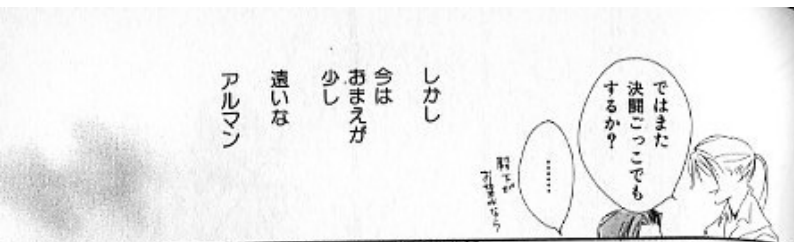 ではまた
決闘ごっこでも
するか?
……
殿下が
お望みなら
しかし
今は
おまえが
少し
遠いな
アルマン